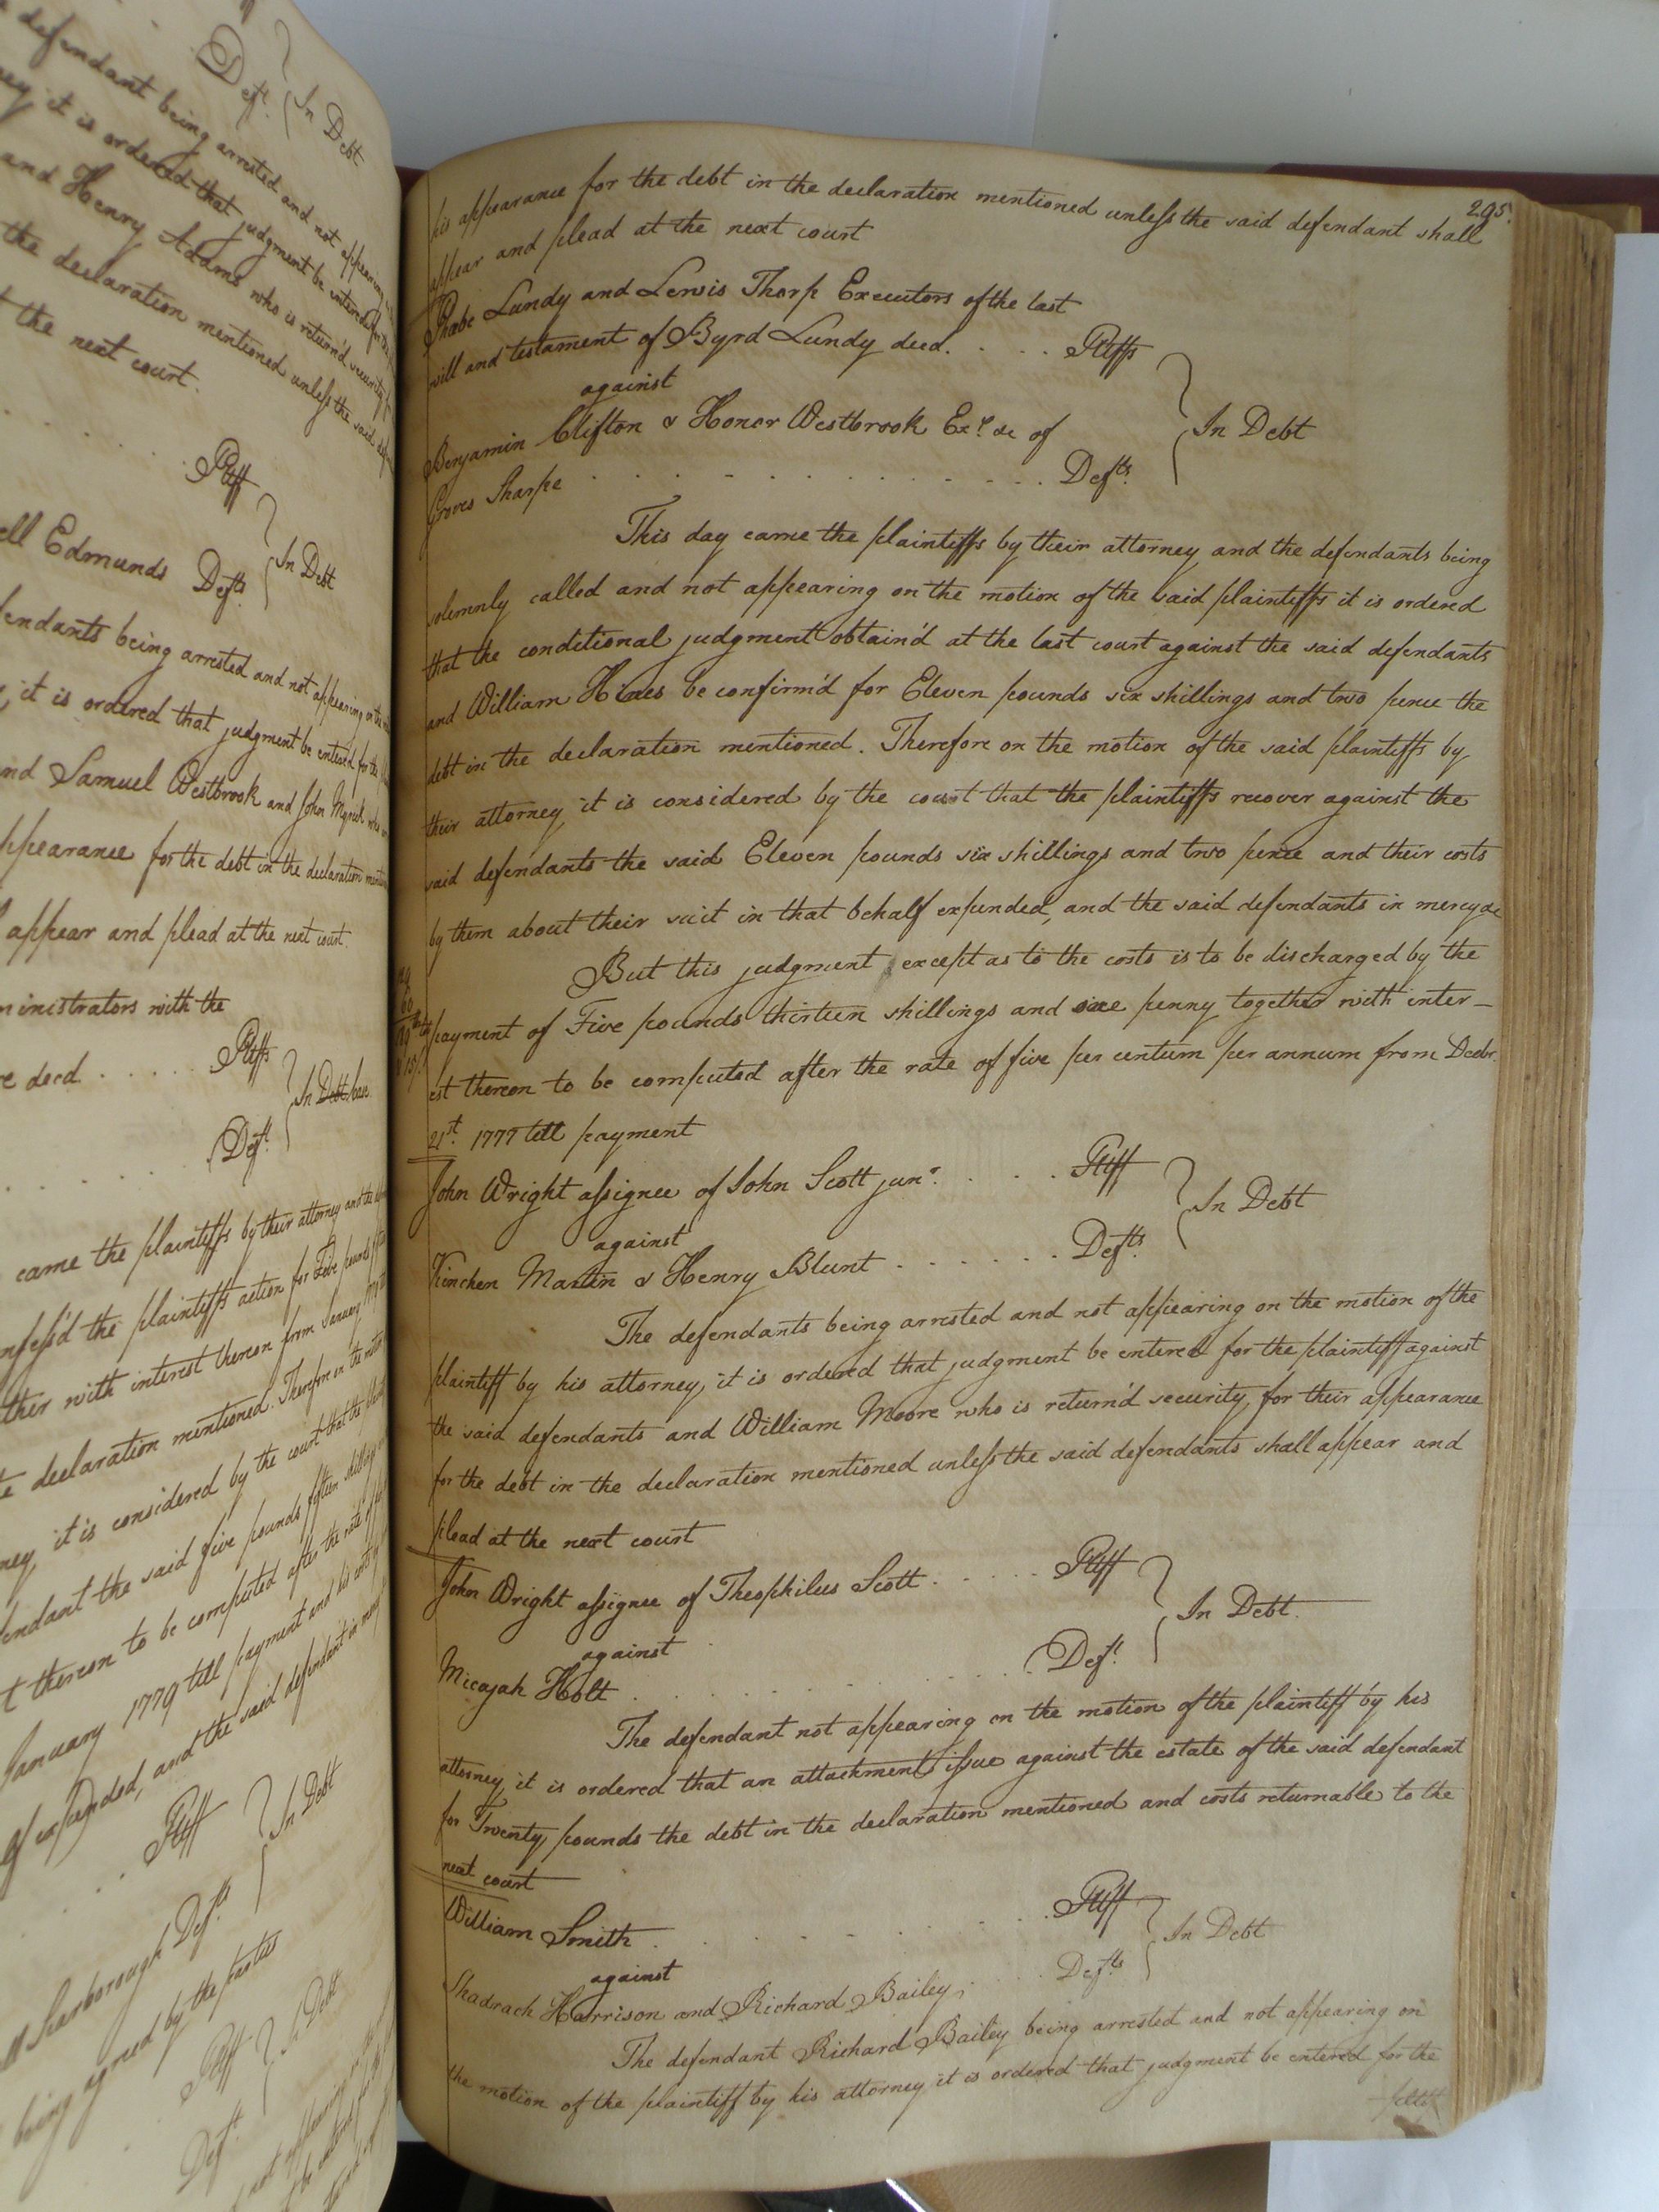 Deft. } In Debt
defendant being arrested and not appearing
it is ordered that judgment be entered for the
and Henry Adams who is return'd security
the declaration mentioned unless the said
the next court.
Pltff
} In Debt
ell Edmunds Defts.
endants being arrested and not appearing on the
it is ordered that judgment be entered for the
nd Samuel Westbrook and John Myrick who
ppearance for the debt in the declaration
appear and plead at the next court.
ministrators with the
decd. . . . . . Pltffs
} In Debt
Deft.
came the plaintiffs by their attorney and the
nfess'd the plaintiffs action for Five pounds
ther with interest thereon from January
declaration mentioned. Therefore on the motion
ney it is considered by the court that the
endant the said five pounds fifteen shillings
t thereon to be computed after the rate of
January 1779 till payment and his costs
lf expended, and the said defendant in mercy
Pltff
} In Debt
Scarborough Deft.
being agreed by the parties
Pltff
} In Debt
Deft.
295.
his appearance for the debt in the declaration mentioned unless the said defendant shall
appear and plead at the next court
Phebe Lundy and Lewis Thorp Executors of the last
will and testament of Byrd Lundy decd. . . . . Pltffs
against
} In Debt
Benjamin Clifton & Honor Westbrook Exr. &c of
Groves Sharpe . . . . . . . . . . . Defts.
This day came the plaintiffs by their attorney and the defendants being
solemnly called and not appearing on the motion of the said plaintiffs it is ordered
that the conditional judgment obtain'd at the last court against the said defendants
and William Hines be confirm'd for Eleven pounds six shillings and two pence the
debt in the declaration mentioned. Therefore on the motion of the said plaintiffs by
their attorney it is considered by the court that the plaintiffs recover against the
said defendants the said Eleven pounds six shillings and two pence and their costs
by them about their suit in that behalf expended, and the said defendants in mercy &c
But this judgment except as to the costs is to be discharged by the
payment of Five pounds thirteen shillings and one penny together with inter-
est thereon to be computed after the rate of five per centum per annum from Decbr.
21st. 1777 till payment
John Wright assignee of John Scott junr. . . . . Pltff
against
} In Debt
Kinchen Martin & Henry Blunt . . . . . . . Defts.
The defendants being arrested and not appearing on the motion of the
plaintiff by his attorney, it is ordered that judgment be entered for the plaintiff against
the said defendants and William Moore who is return'd security for their appearance
for the debt in the declaration mentioned unless the said defendants shall appear and
plead at the next court
John Wright assignee of Theophilus Scott . . . . . . Pltff
against
} In Debt.
Micajah Holt . . . . . . . . . . Deft.
The defendant not appearing on the motion of the plaintiff by his
attorney, it is ordered that an attachment issue against the estate of the said defendant
for Twenty pounds the debt in the declaration mentioned and costs returnable to the
next court
William Smith . . . . . . . . . Pltff
against
} In Debt
Shadrach Harrison and Richard Bailey, . . . . Defts
The defendant Richard Bailey being arrested and not appearing on
the motion of the plaintiff by his attorney it is ordered that judgment be entered for the
pltiff